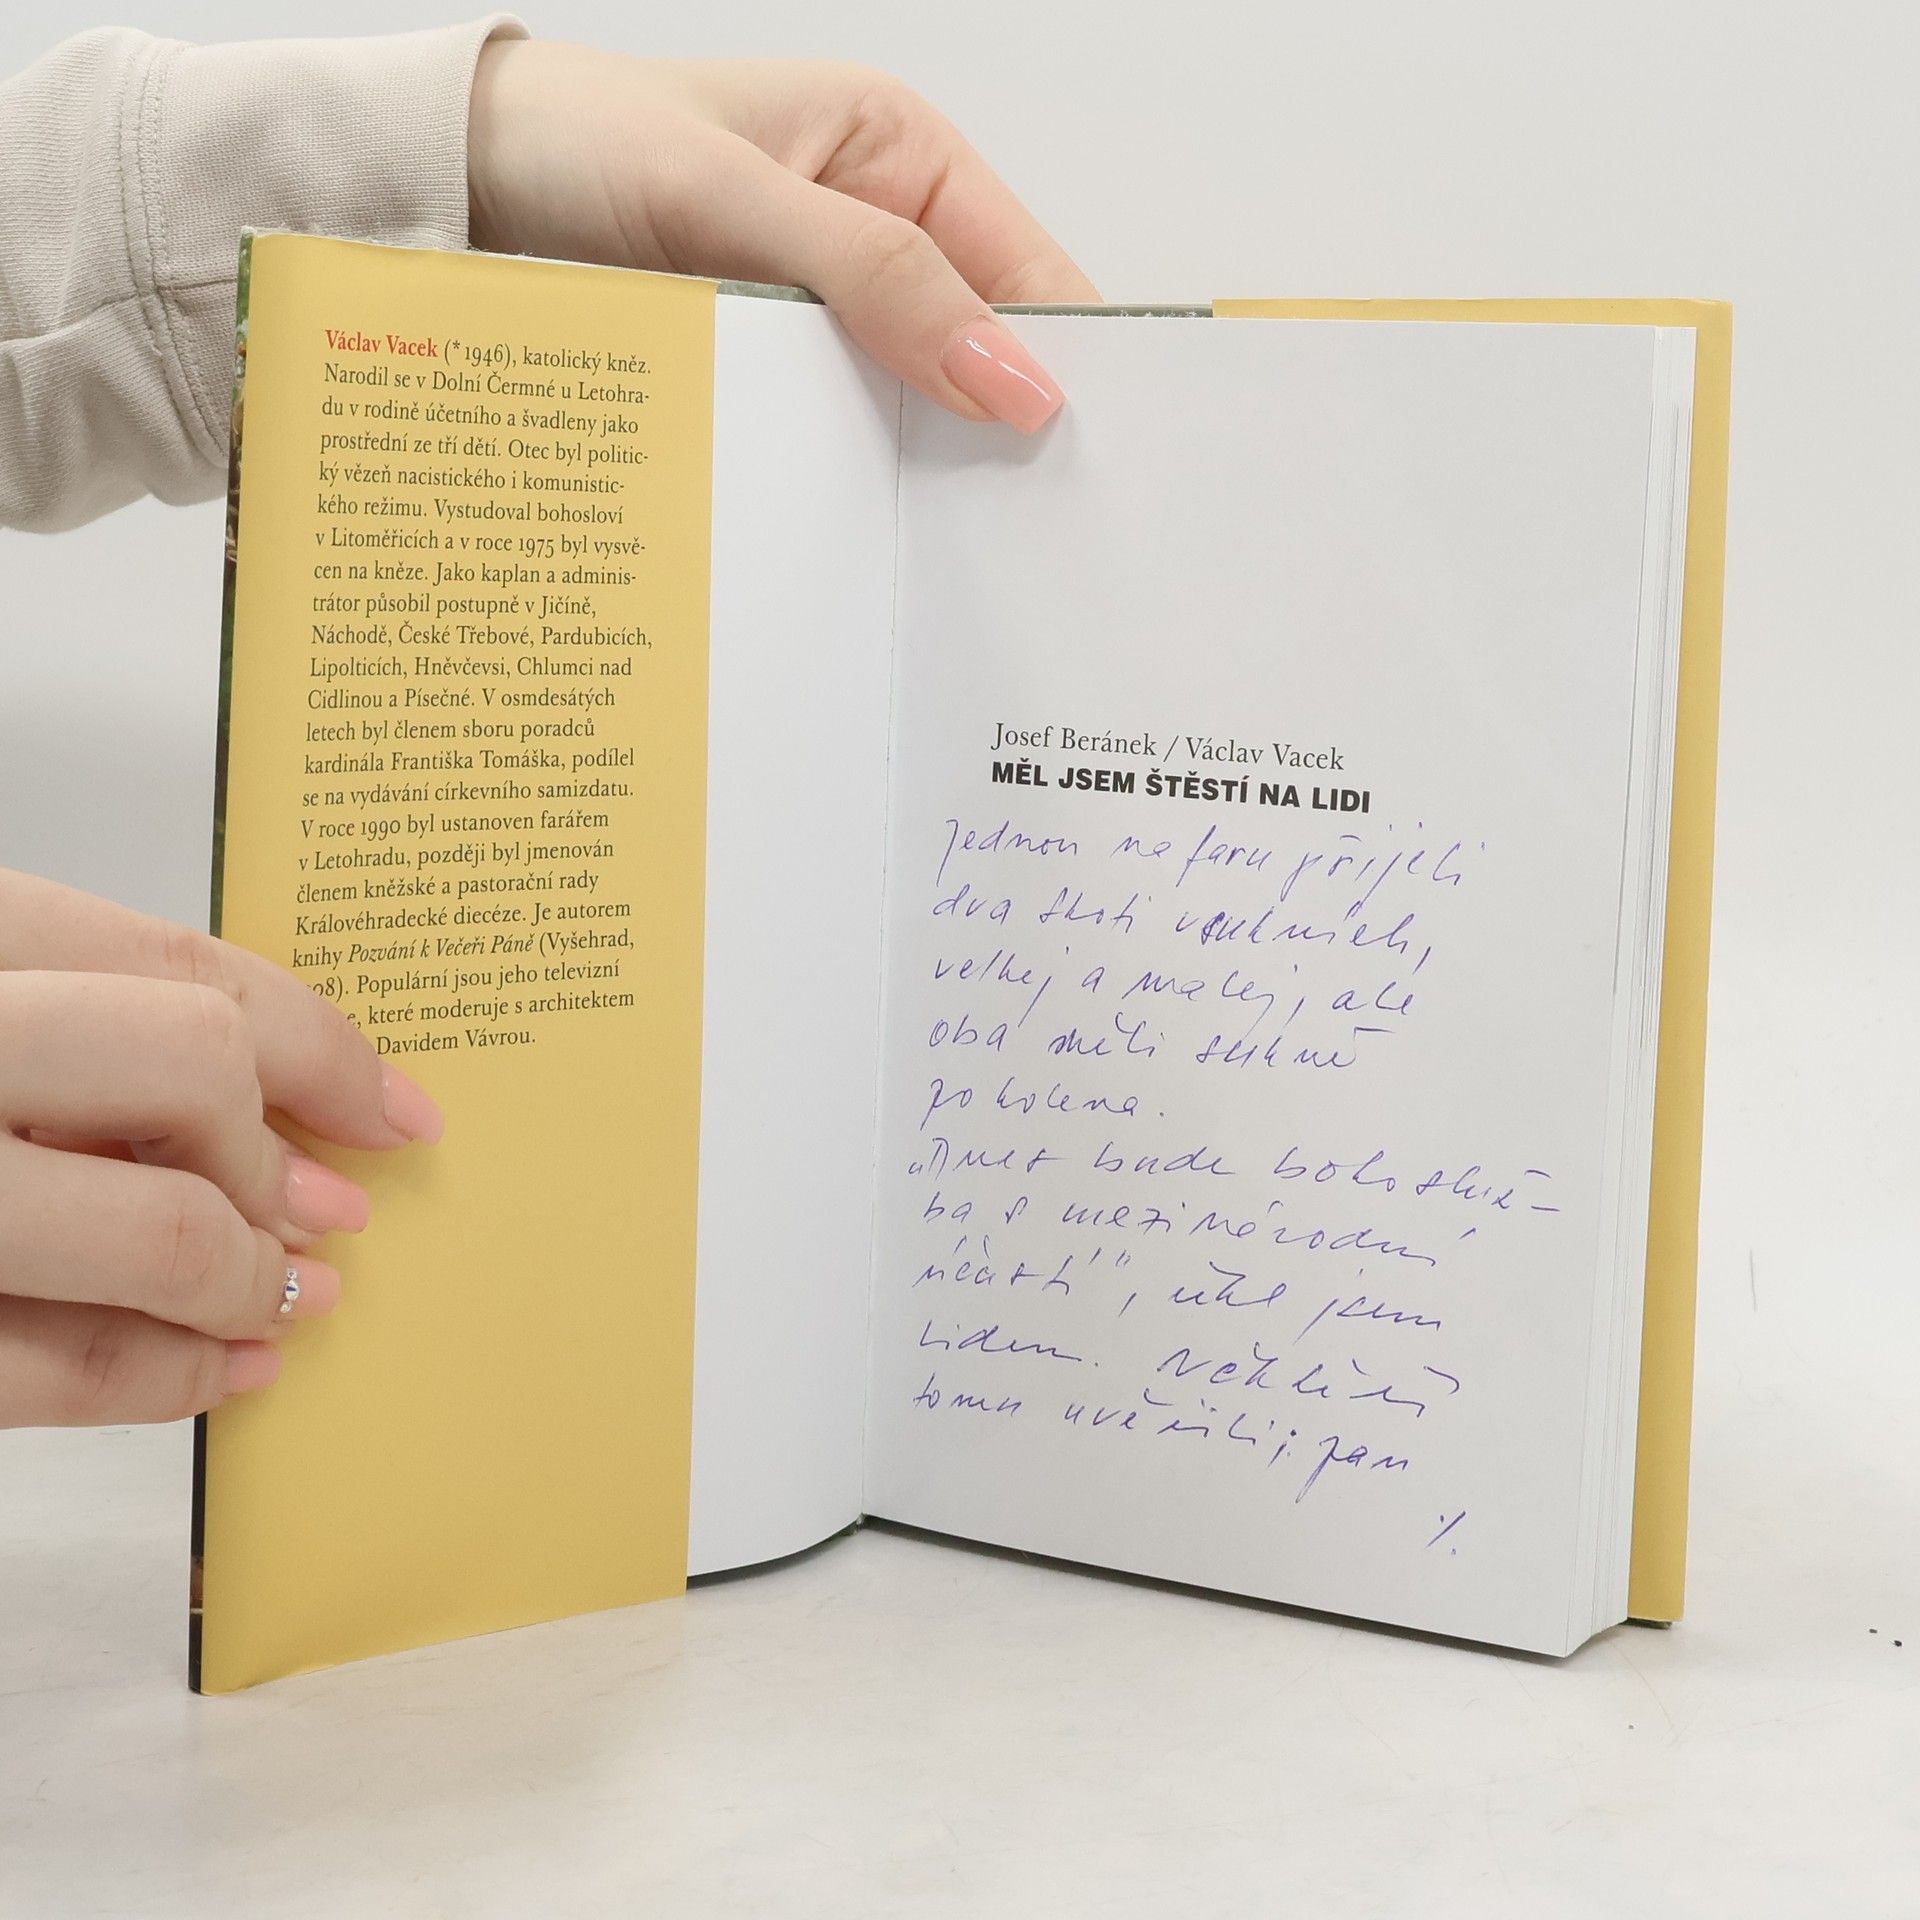 Václav Vacek (* 1946), katolický kněz.
Narodil se v Dolní Čermné u Letohra-
du v rodině účetního a švadleny jako
prostřední ze tří dětí. Otec byl politic-
ký vězeň nacistického i komunistic-
kého režimu. Vystudoval bohosloví
v Litoměřicích a v roce 1975 byl vysvě-
cen na kněze. Jako kaplan a adminis-
trátor působil postupně v Jičíně,
Náchodě, České Třebové, Pardubicích,
Lipolticích, Hněvčevsi, Chlumci nad
Cidlinou a Písečné. V osmdesátých
letech byl členem sboru poradců
kardinála Františka Tomáška, podílel
se na vydávání církevního samizdatu.
V roce 1990 byl ustanoven farářem
v Letohradu, později byl jmenován
členem kněžské a pastorační rady
Královéhradecké diecéze. Je autorem
knihy Pozvání k Večeři Páně (Vyšehrad,
08). Populární jsou jeho televizní
e, které moderuje s architektem
Davidem Vávrou.
Josef Beránek / Václav Vacek
MĚL JSEM ŠTĚSTÍ NA LIDI
Jednou na faru přijeli
dva skoti v sukních,
velkej a malej, ale
oba měli sukně
po kolena.
„Dnes bude bohosluž-
ba s mezinárodní
účastí", řekl jsem
lidem. Někteří
tomu uvěřili; pan
./.